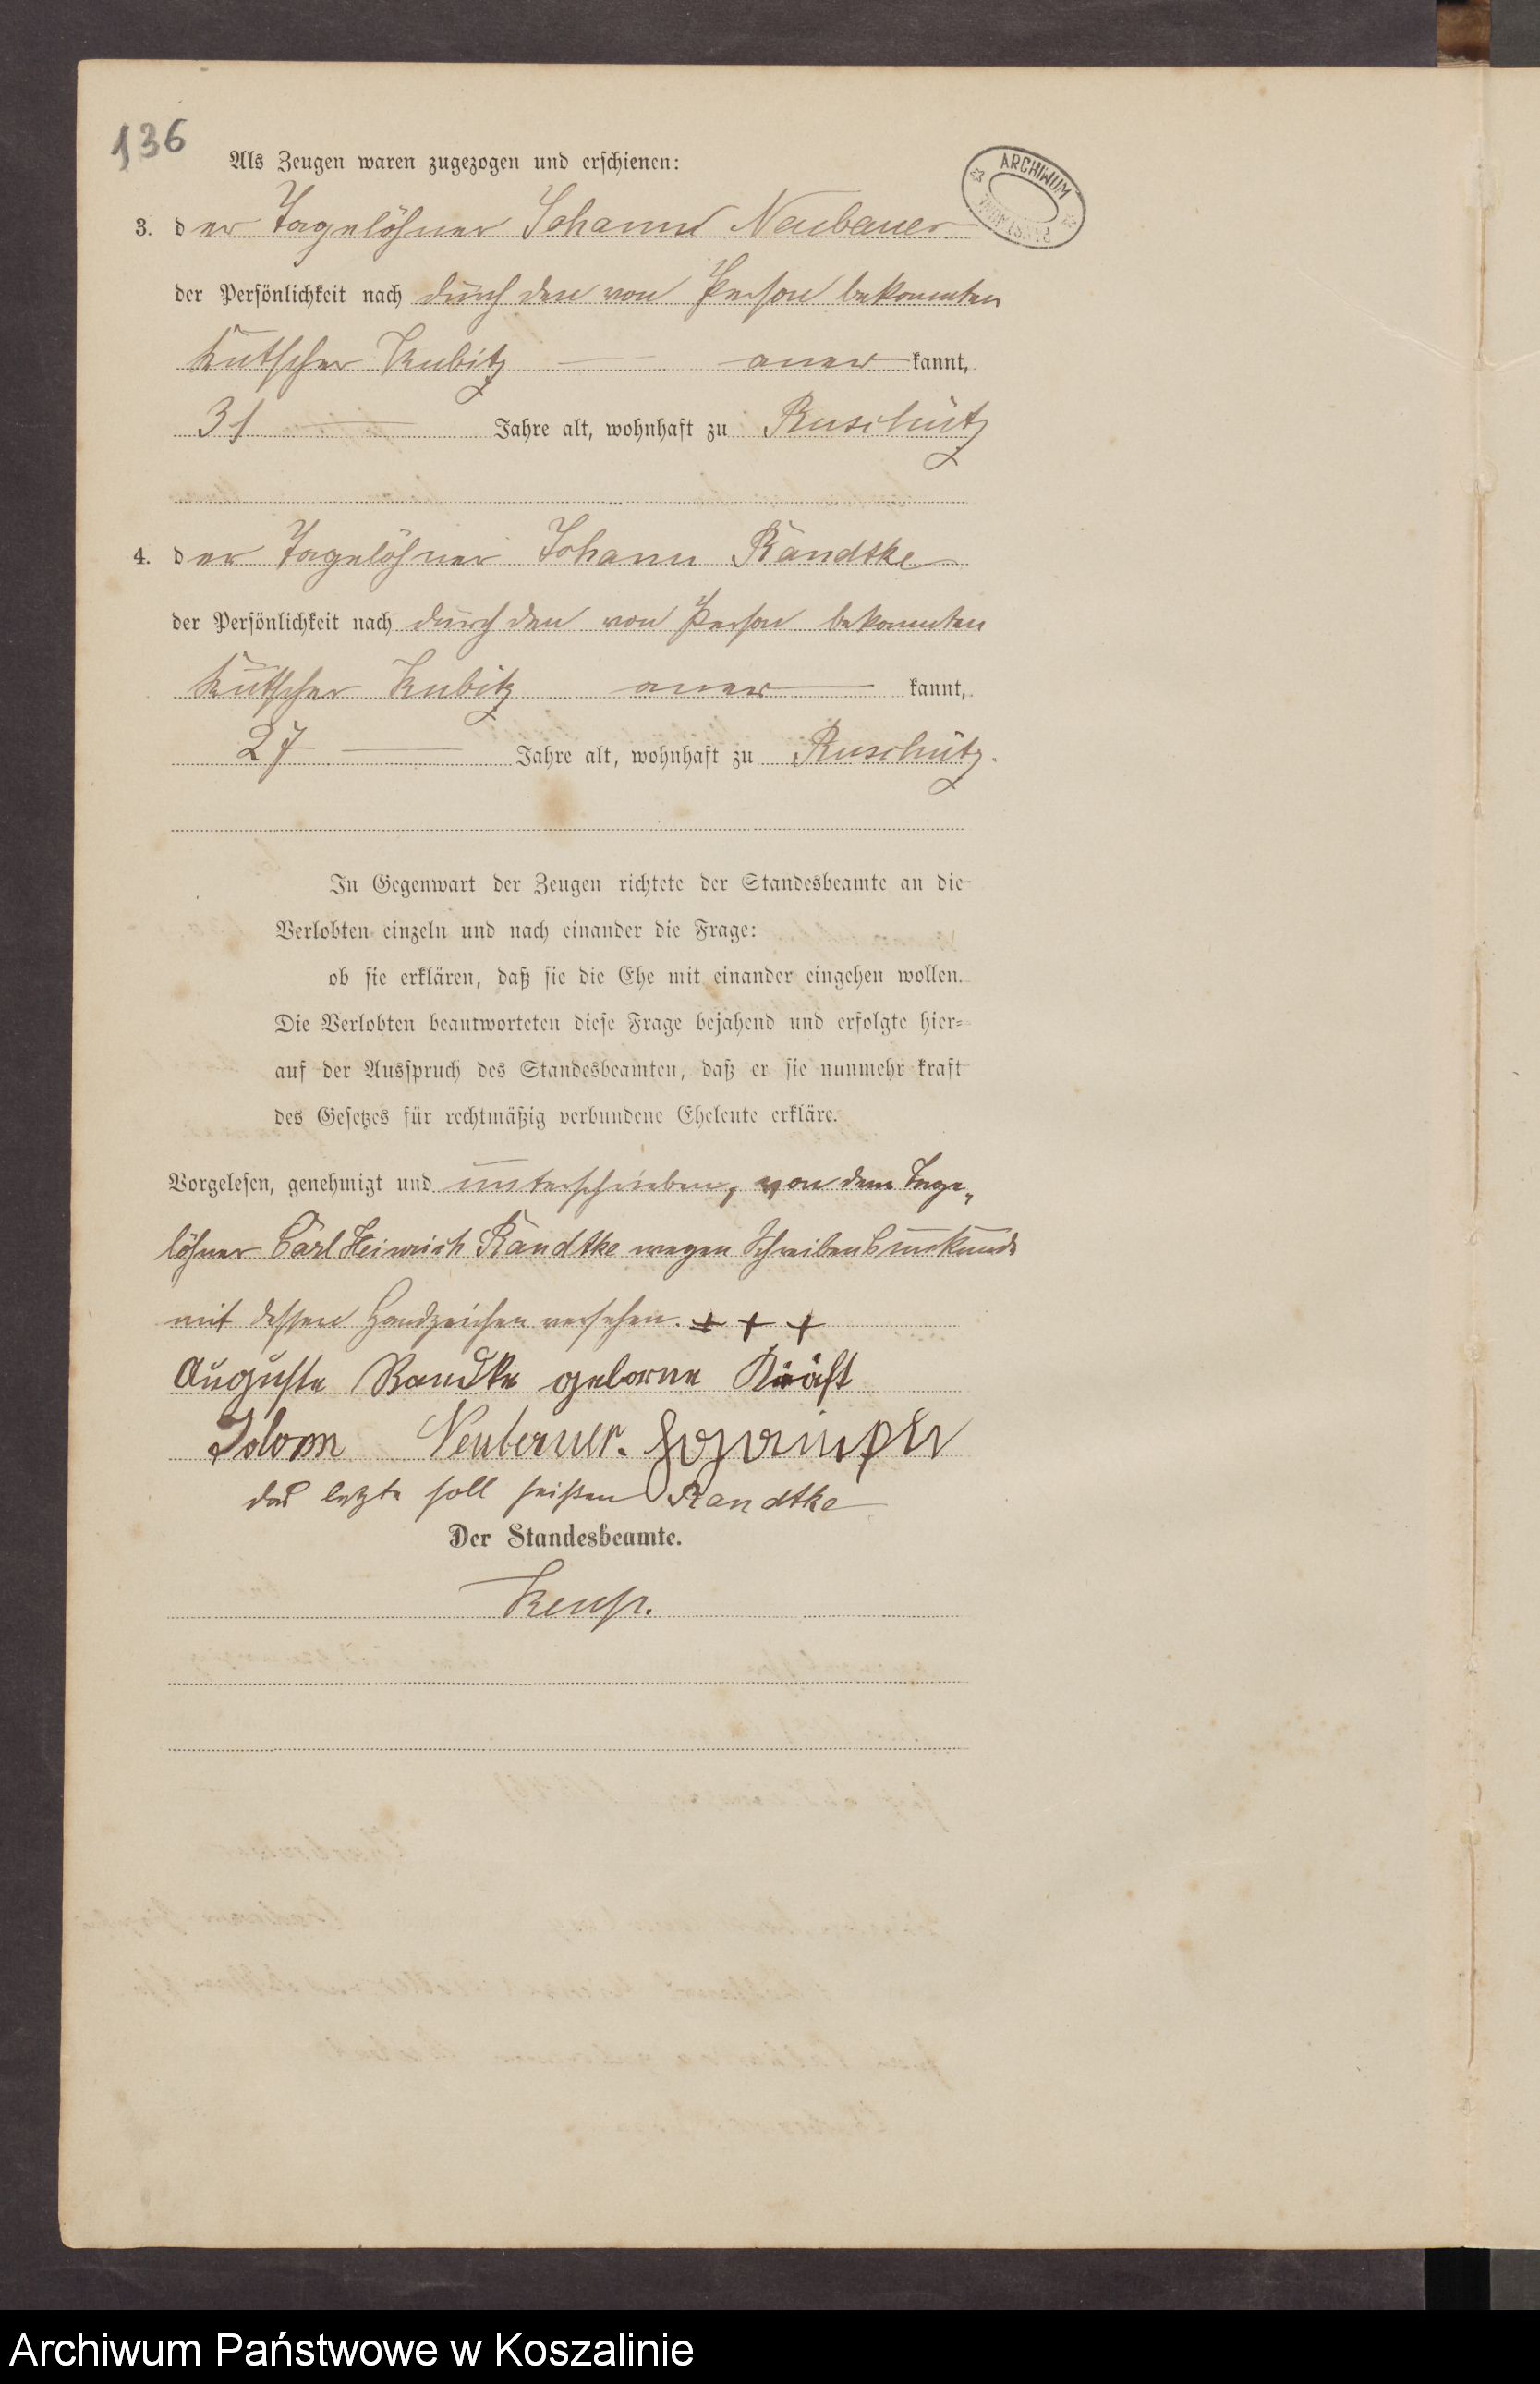 136
Als Zeugen waren zugezogen und erschienen:
3. der Tagelöhner Johann Neubauer
der Persönlichkeit nach durch den von Person bekannten
Kutscher Kubitz anerkannt,
31 Jahre alt, wohnhaft zu Ruschütz
4. der Tagelöhner Johann Randtke
der Persönlichkeit nach durch den von Person bekannten
Kutscher Kubitz anerkannt,
27 Jahre alt, wohnhaft zu Ruschütz.
In Gegenwart der Zeugen richtete der Standesbeamte an die
Verlobten einzeln und nach einander die Frage:
ob sie erklären, daß sie die Ehe mit einander eingehen wollen.
Die Verlobten beantworteten diese Frage bejahend und erfolgte hier-
auf der Ausspruch des Standesbeamten, daß er sie nunmehr kraft
des Gesetzes für rechtmäßig verbundene Eheleute erkläre.
Vorgelesen, genehmigt und unterschrieben, von dem Tage-
löhner Carl Heinrich Randtke wegen Schreibensunkunde
mit dessen Handzeichen versehen. + + +
Auguste Randke geborne Kräft
Neubauer.
das letzte soll heißen Randtke
Der Standesbeamte.
ARCHIWUM
Archiwum Państwowe w Koszalinie